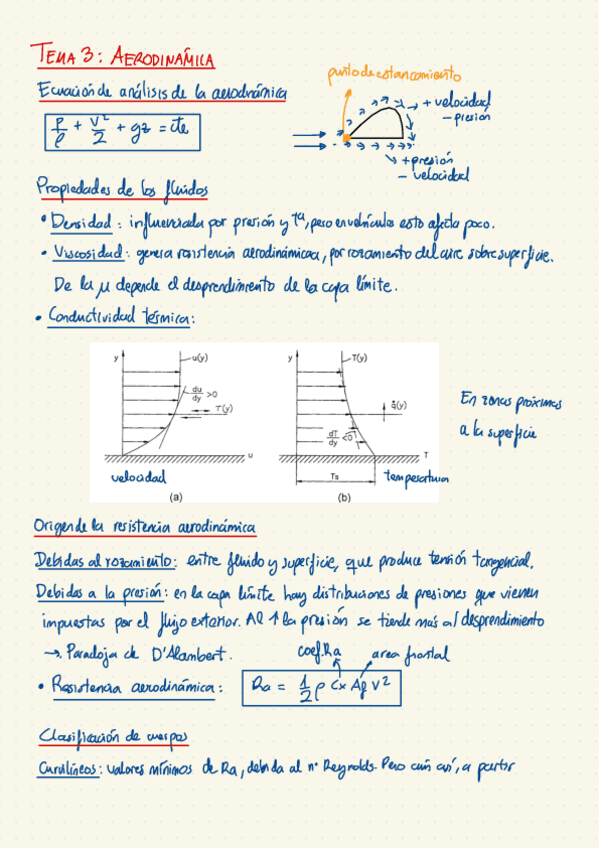 TEMA 3: AERODINÁMICA
punto de estancamiento
Ecuación de análisis de la aerodinámica
+ velocidad
- presión
P/ρ + V²/2 + gz = cte
+ presión
- velocidad
Propiedades de los fluidos
• Densidad: influenciada por presión y Tª, pero en vehículos esto afecta poco.
• Viscosidad: genera resistencia aerodinámica, por rozamiento del aire sobre superficie.
De la μ depende el desprendimiento de la capa límite.
• Conductividad térmica:
y u(y) y T(y)
du/dy >0
τ(y) q̇(y)
dT/dy <0
u T
Ts
velocidad temperatura
(a) (b)
En zonas próximas
a la superficie
Origen de la resistencia aerodinámica
Debidas al rozamiento: entre fluido y superficie, que produce tensión tangencial.
Debidas a la presión: en la capa límite hay distribuciones de presiones que vienen
impuestas por el flujo exterior. Al ↑ la presión se tiende más al desprendimiento
→ Paradoja de D'Alambert.
coef.Ra area frontal
• Resistencia aerodinámica: Ra = 1/2 ρ Cx Af V²
Clasificación de cuerpos
Curvilíneos: valores mínimos de Ra, debida al nº Reynolds. Pero aún así, a partir